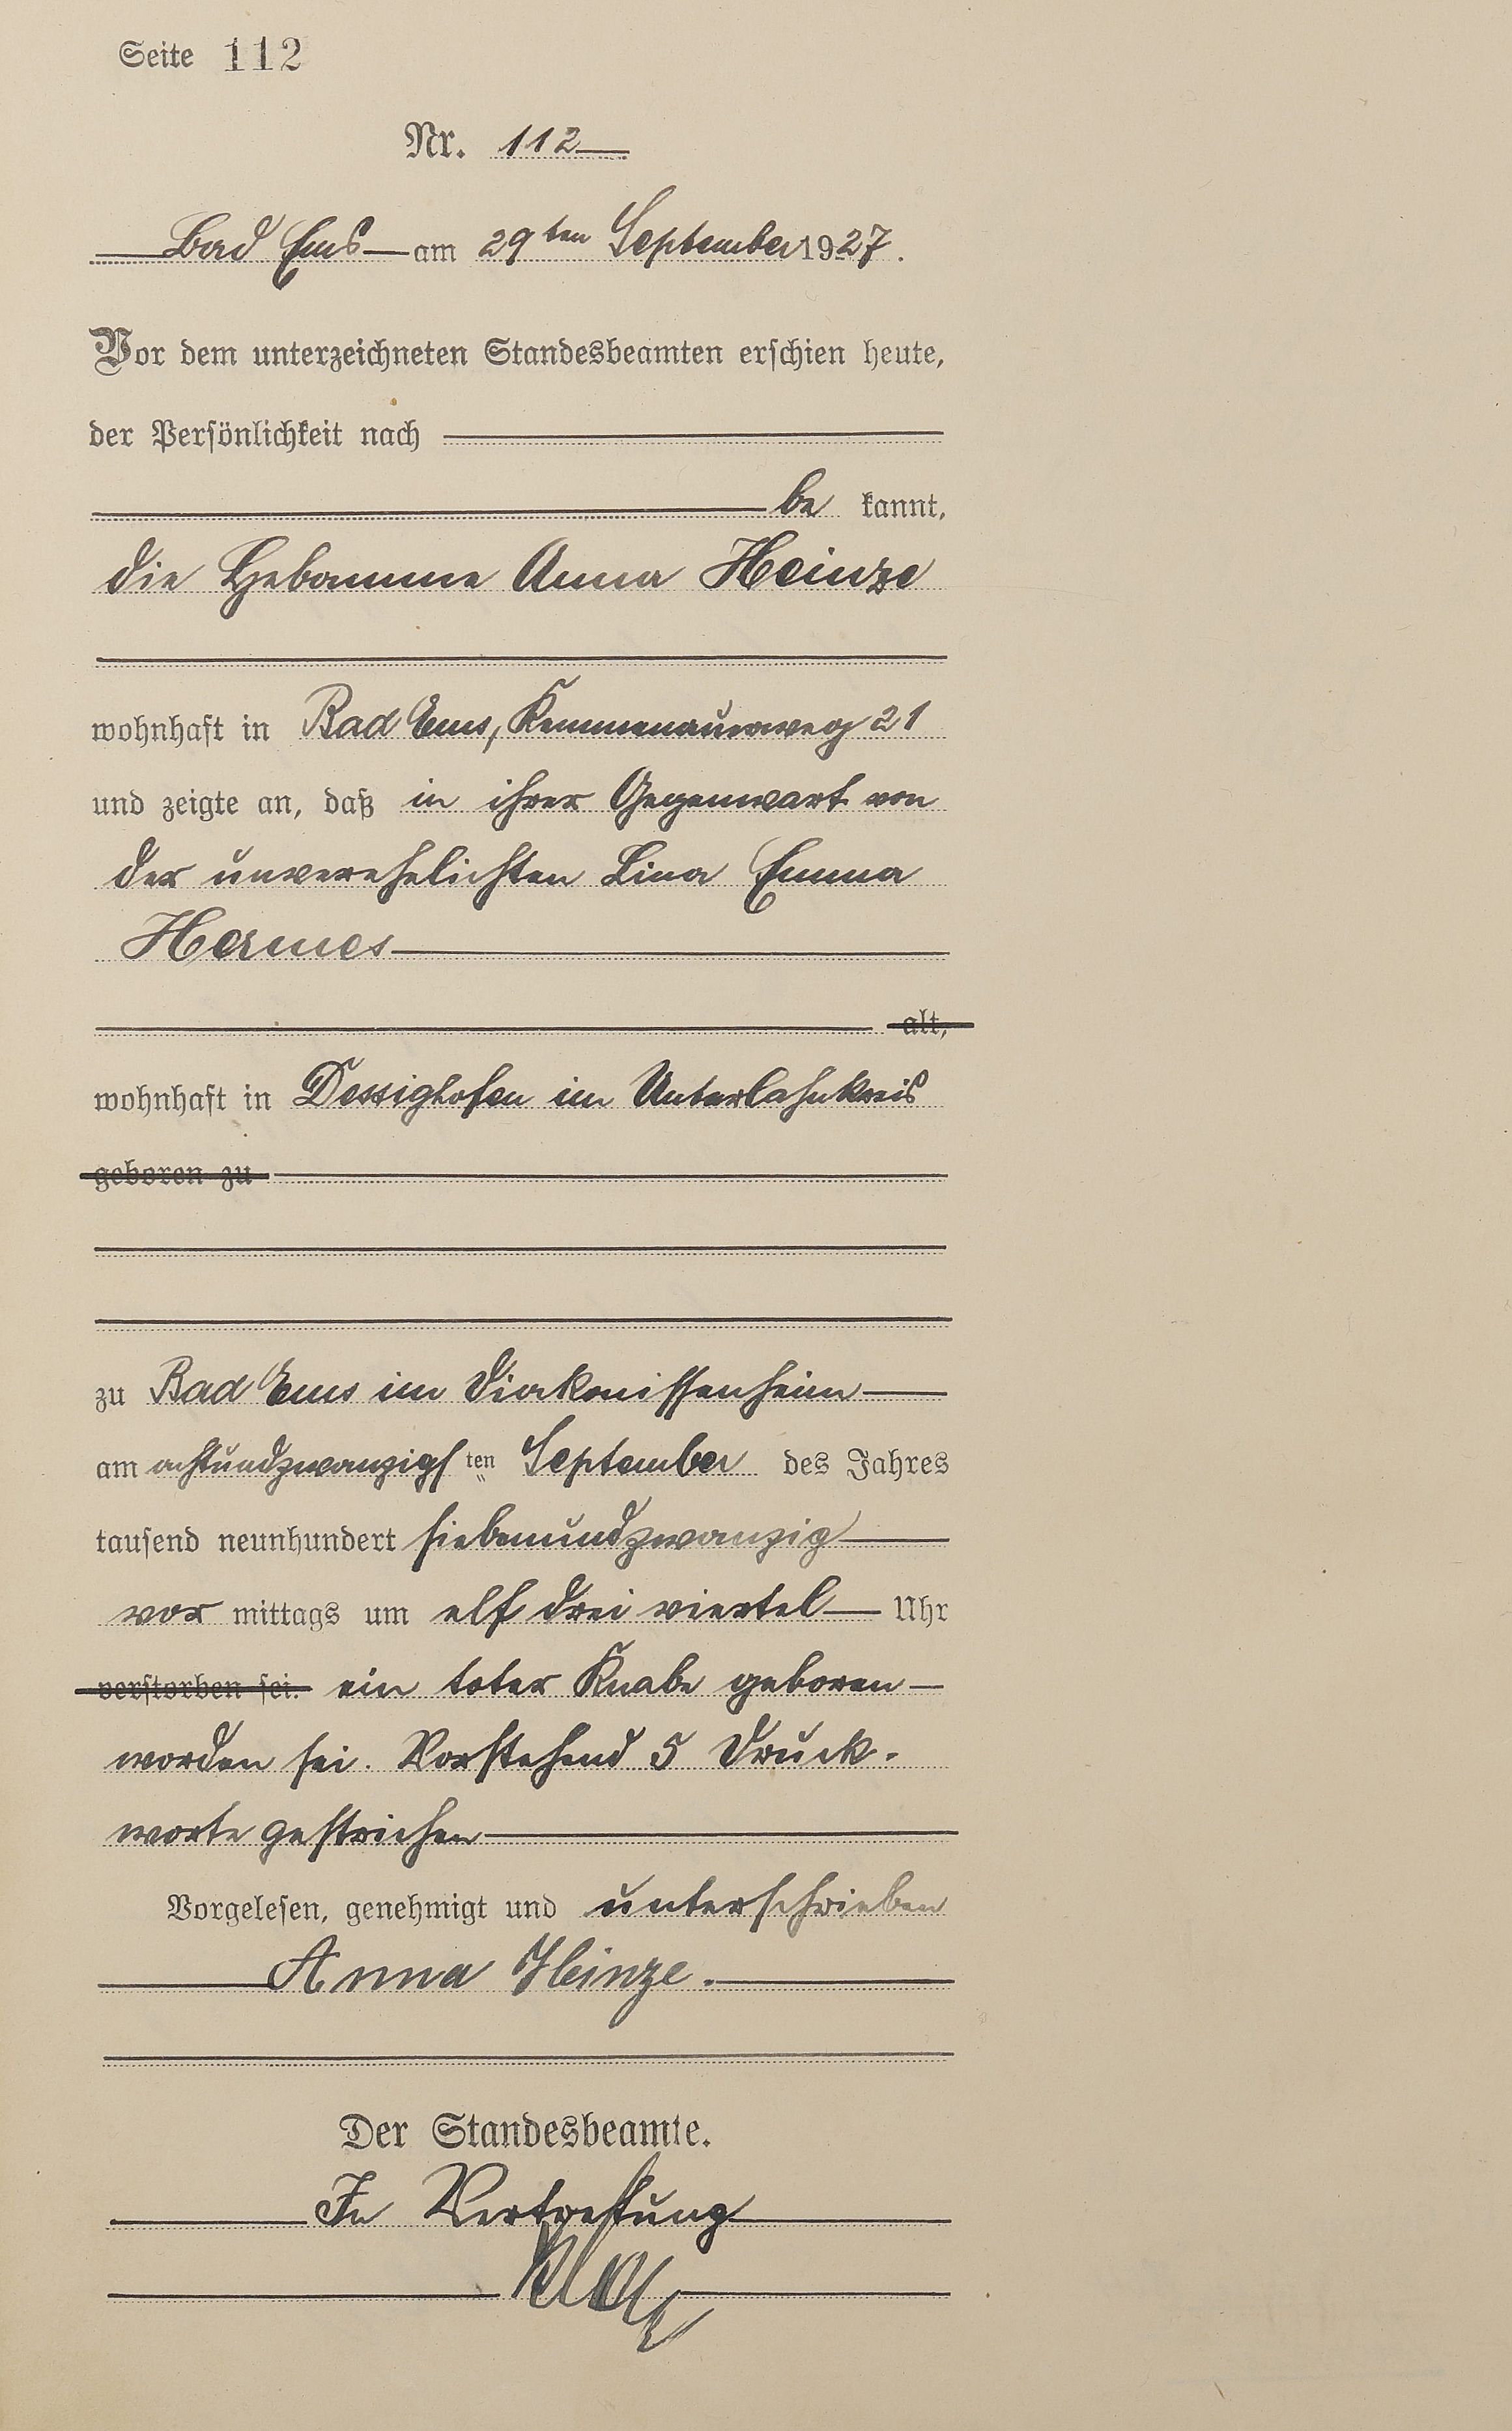 Seite 112
Nr. 112
Bad Ems am 29ten September 1927.
Vor dem unterzeichneten Standesbeamten erschien heute,
der Persönlichkeit nach
be kannt,
die Hebamme Anna Heinze
wohnhaft in Bad Ems, Kemmenauerweg 21
und zeigte an, daß in ihrer Gegenwart von
der unverehelichten Lina Emma
Hermes
alt,
wohnhaft in Dessighofen im Unterlahnkreis
geboren zu
zu Bad Ems im Diakonissenheim
am achtundzwanzigsten September des Jahres
tausend neunhundert siebenundzwanzig
vor mittags um elf drei viertel Uhr
verstorben sei. ein toter Knabe geboren
worden sei. Vorstehend 5 Druck-
worte gestrichen
Vorgelesen, genehmigt und unterschrieben
Anna Heinze.
Der Standesbeamte.
In Vertretung